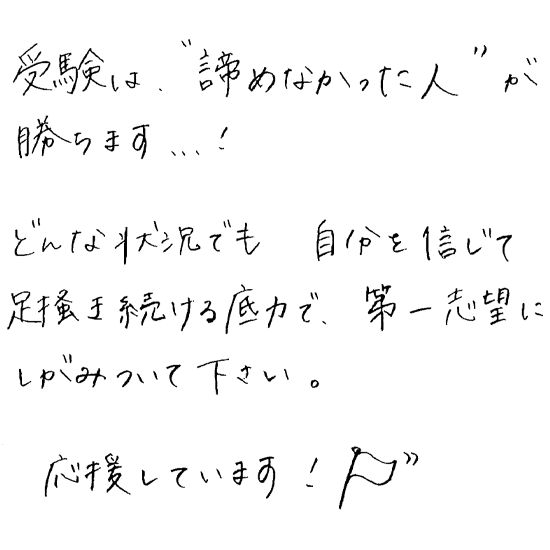 受験は、〝諦めなかった人〞が
勝ちます...!
どんな状況でも 自分を信じて
足掻き続ける底力で、第一志望に
しがみついて下さい。
応援しています!